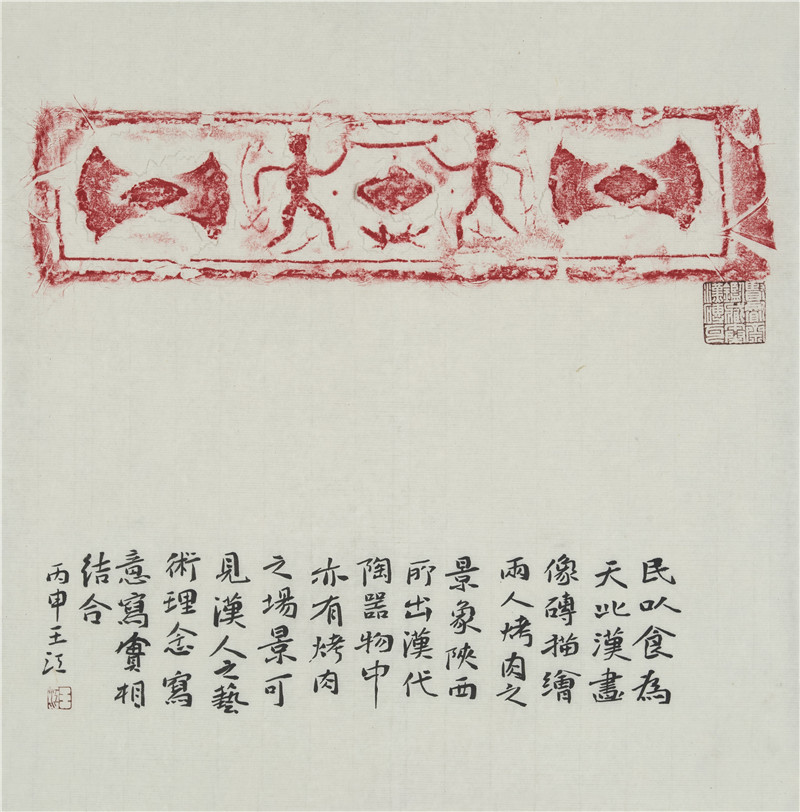 民以食為
天此漢畫
像磚描繪
兩人烤肉之
景象陝西
所出漢代
陶器物中
亦有烤肉
之場景可
見漢人之藝
術理念寫
意寫實相
結合
丙申王江